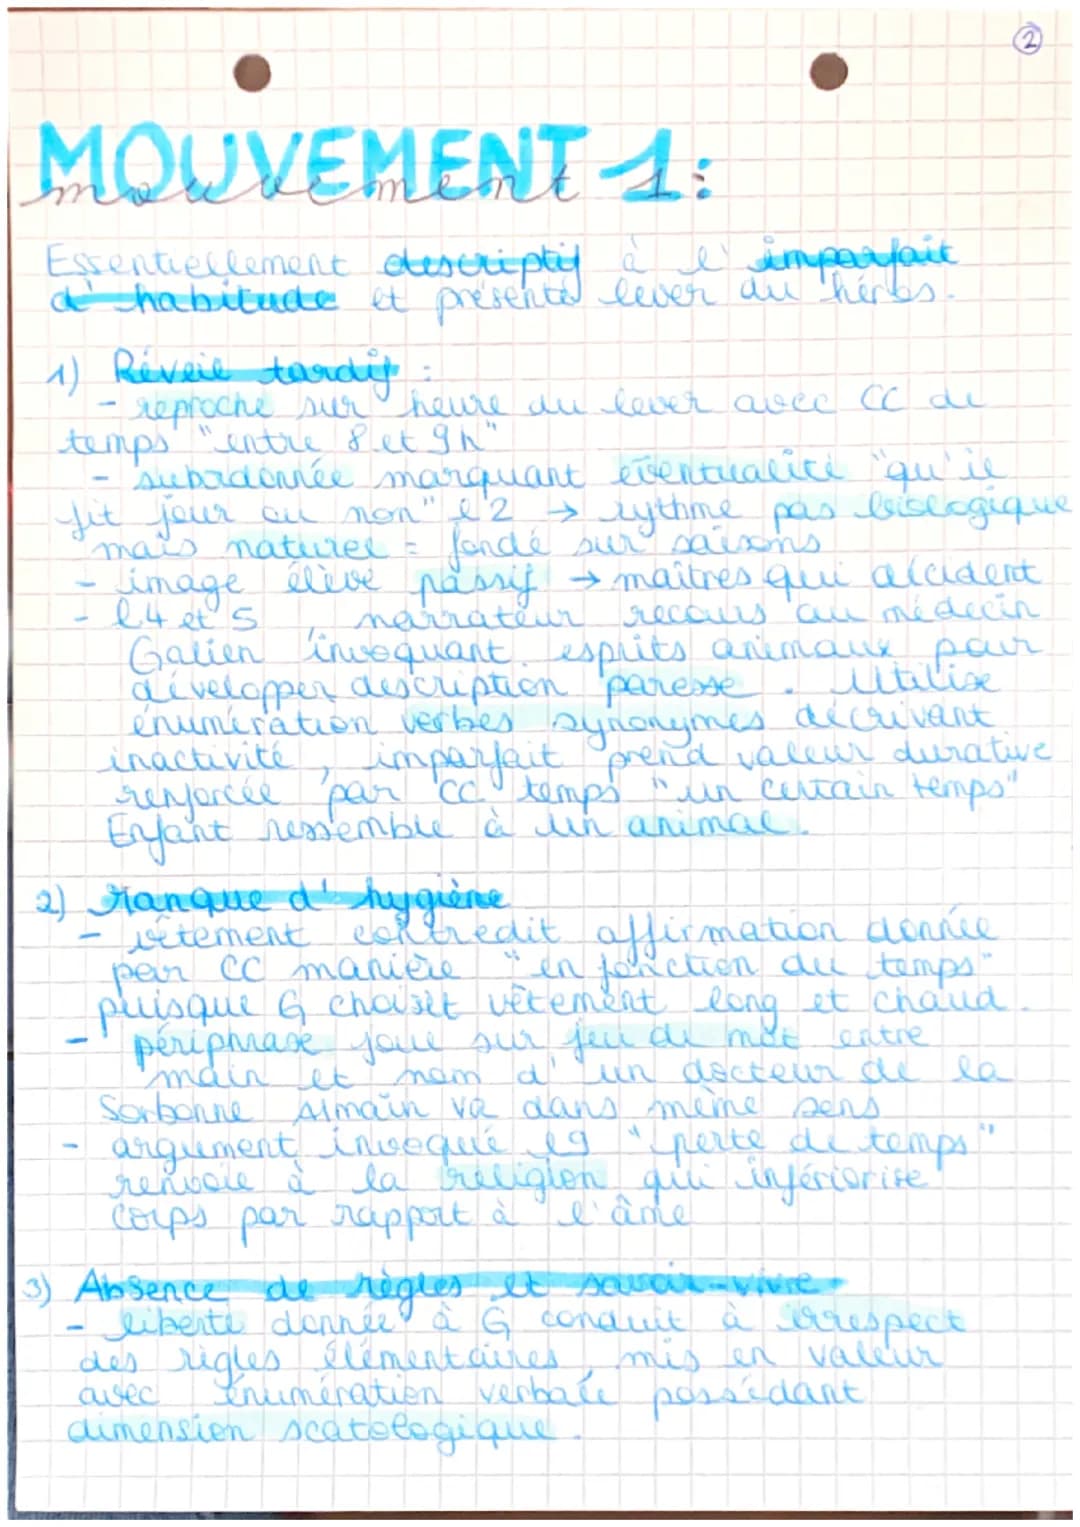 2
MOUVEMENT 1:
mouvement
Essentiellement descriptif à l'imparfait
d'habitude et présente lever du héros.
1) Réveil tardif :
- reproche sur heure du lever avec CC de
temps "entre 8 et 9h"
- subordonnée marquant éventualité "qu'il
fit jour ou non" l2 → rythme pas biologique
mais naturel = fondé sur saisons
- image élève passif → maîtres qui décident
- l4 et 5, narrateur recours au médecin
Galien invoquant esprits animaux pour
développer description paresse. Utilise
énumération verbes synonymes décrivant
inactivité, imparfait prend valeur durative
renforcée par CC temps "un certain temps"
Enfant ressemble à un animal.
2) Manque d'hygiène
- vêtement contredit affirmation donnée
par CC manière "en fonction du temps"
puisque G choisit vêtement long et chaud.
- périphrase joue sur jeu de mot entre
main et nom d'un docteur de la
Sorbonne Almain va dans même sens
- argument invoqué l9 "perte de temps"
renvoie à la religion qui infériorise
corps par rapport à l'âme
3) Absence de règles et savoir-vivre
- liberté donnée à G conduit à irrespect
des règles élémentaires, mis en valeur
avec énumération verbale possédant
dimension scatologique.